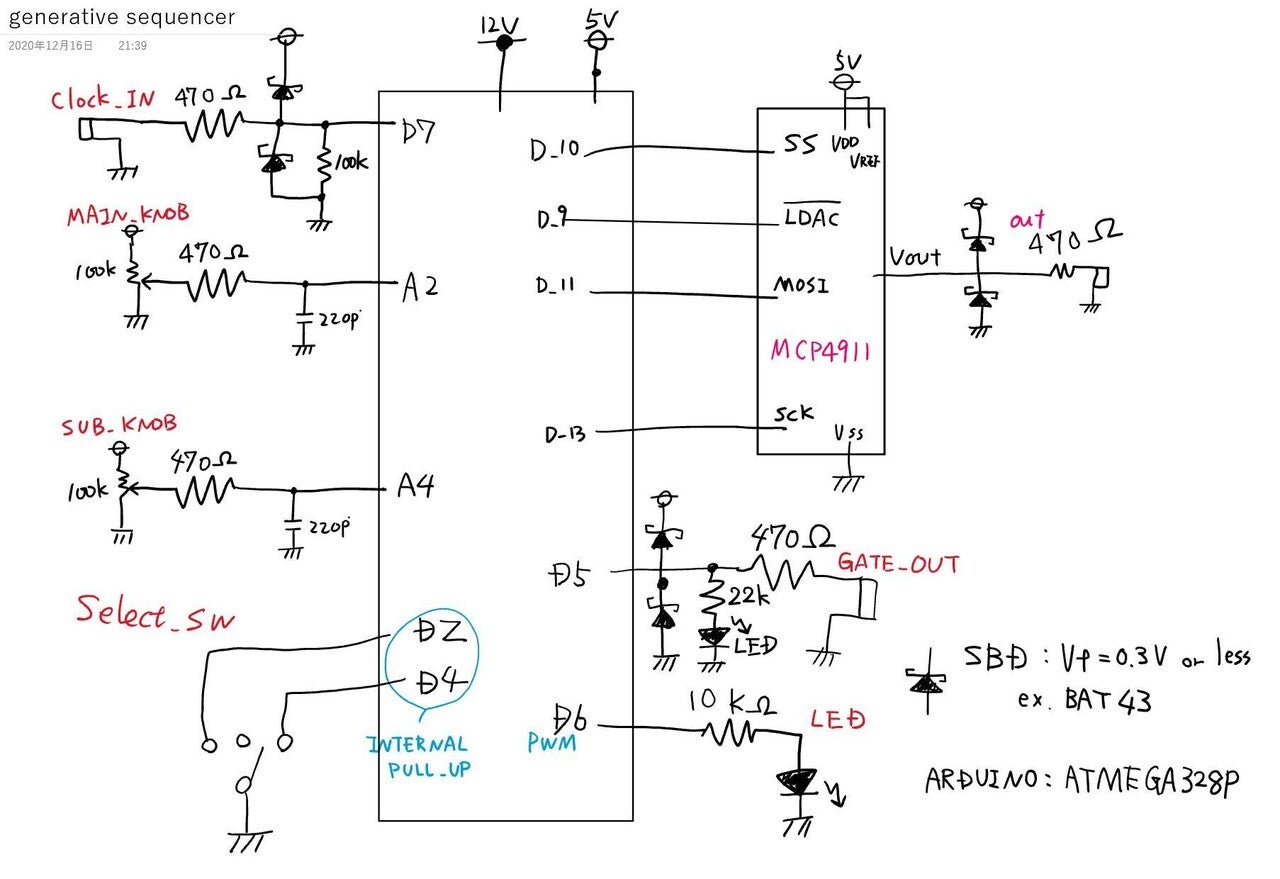 generative sequencer
2020年12月16日 21:39
12V
5V
Clock_IN
470Ω
D7
100k
MAIN_KNOB
100k
470Ω
A2
220p
SUB_KNOB
100k
470Ω
A4
220p
Select_SW
D2
D4
INTERNAL
PULL_UP
D_10
D_9
D_11
D_13
5V
SS
VDD
VREF
LDAC
MOSI
MCP4911
SCK
Vss
Vout
out
470Ω
D5
470Ω
GATE_OUT
22k
LED
D6
PWM
10kΩ
LED
SBD : Vf = 0.3V or less
ex. BAT43
ARDUINO : ATMEGA328P